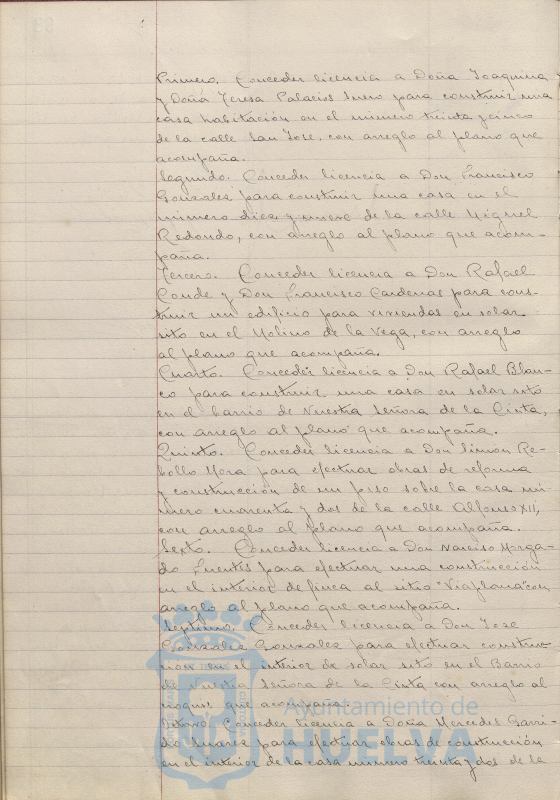 Primero. Conceder licencia a Doña Joaquina
y Doña Teresa Palacios Suero para construir una
casa habitación en el número treinta y cinco
de la calle San José, con arreglo al plano que
acompaña.
Segundo. Conceder licencia a Don Francisco
Gonzalez para construir una casa en el
número diez y nueve de la calle Miguel
Redondo, con arreglo al plano que acom-
paña.
Tercero. Conceder licencia a Don Rafael
Conde y Don Francisco Cardenas para cons-
truir un edificio para viviendas en solar
sito en el Molino de la Vega, con arreglo
al plano que acompaña.
Cuarto. Conceder licencia a Don Rafael Blan-
co para construir una casa en solar sito
en el barrio de Nuestra Señora de la Cinta,
con arreglo al plano que acompaña.
Quinto. Conceder licencia a Don Simón Re-
bollo Mora para efectuar obras de reforma
y construcción de un piso sobre la casa nú-
mero cuarenta y dos de la calle Alfonso XII,
con arreglo al plano que acompaña.
Sexto. Conceder licencia a Don Narciso Morga-
do Fuentes para efectuar una construcción
en el interior de finca al sitio "Viaplana" con
arreglo al plano que acompaña.
Septimo. Conceder licencia a Don José
Gonzalez Gonzalez para efectuar construc-
cion en el interior de solar sito en el Barrio
de Nuestra Señora de la Cinta con arreglo al
croquis que acompaña.
Octavo. Conceder licencia a Doña Mercedes Garri-
do Suarez para efectuar obras de construcción
en el interior de la casa número treinta y dos de la
Ayuntamiento de
HUELVA